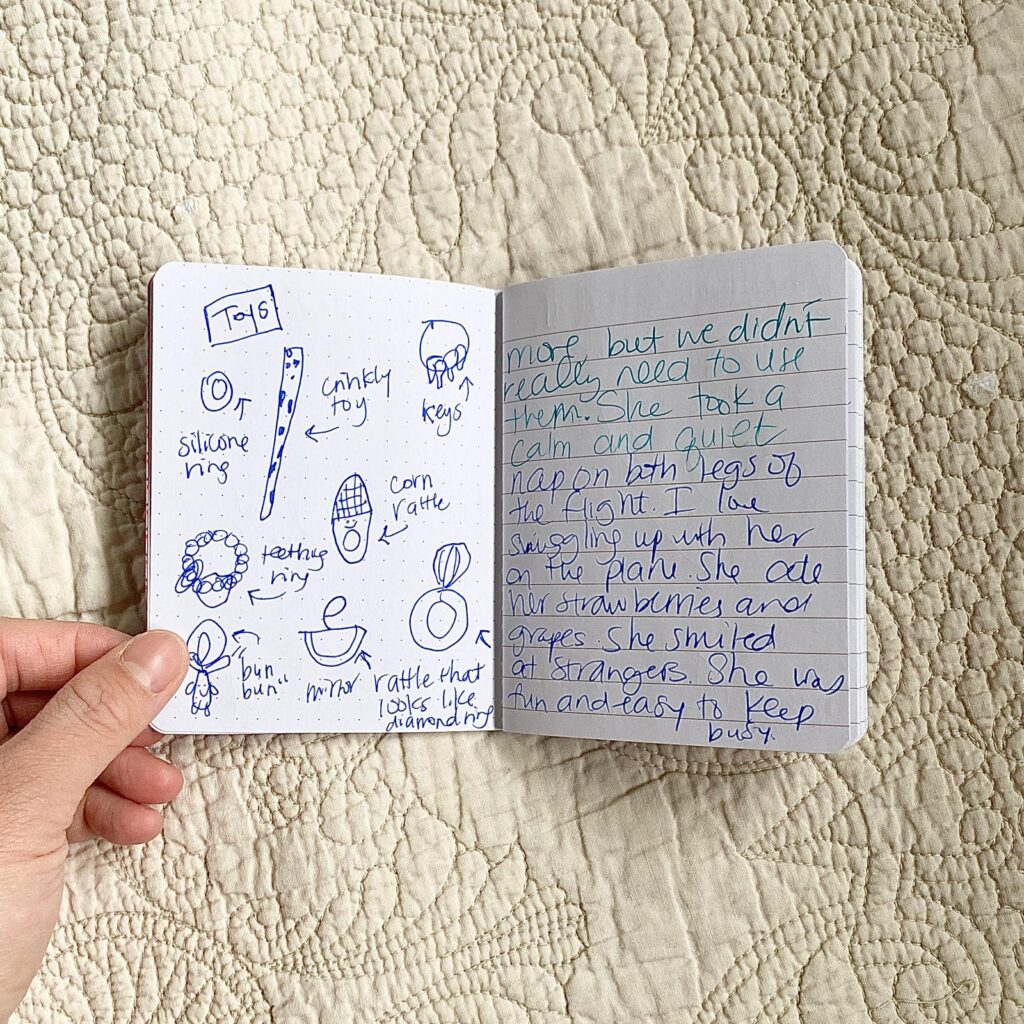 Toys
silicone
ring
crinkly
toy
keys
corn
rattle
teething
ring
"bun
bun"
mirror
rattle that
looks like
diamond ring
more, but we didn't
really need to use
them. She took a
calm and quiet
nap on both legs of
the flight. I love
snuggling up with her
on the plane. She ate
her strawberries and
grapes. She smiled
at strangers. She was
fun and easy to keep
busy.